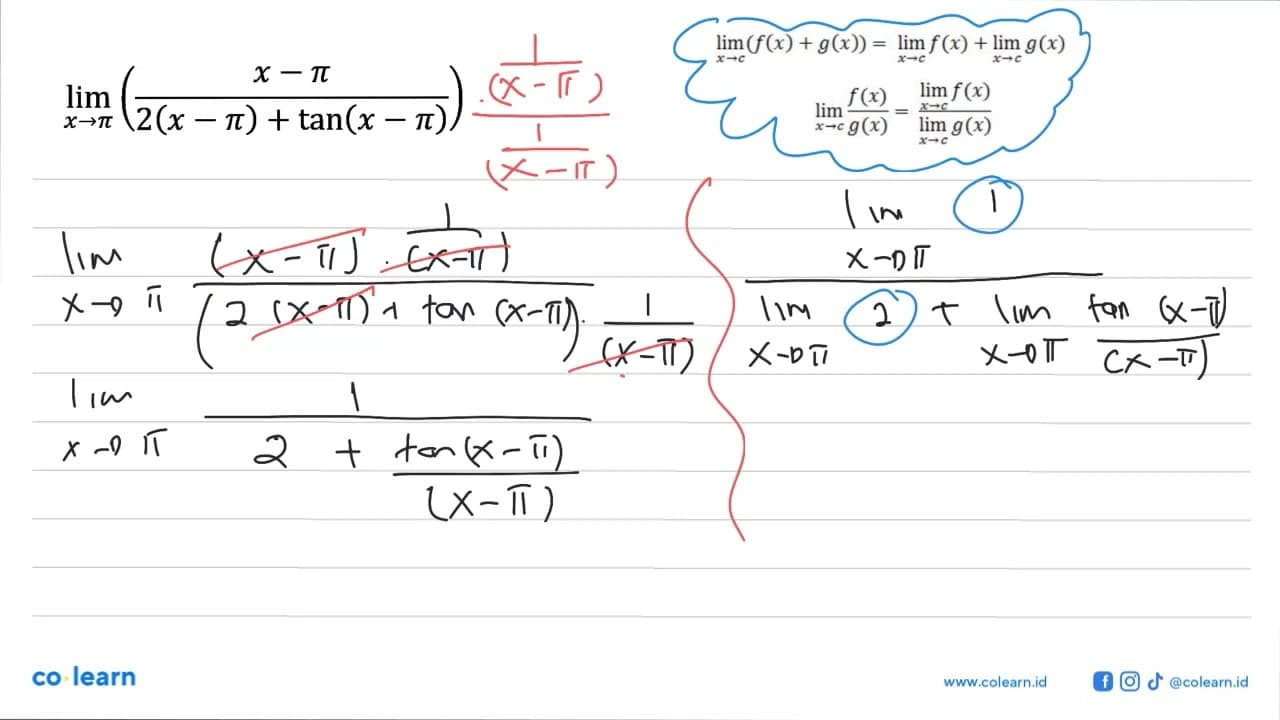 lim x→π ( (x − π) / (2(x − π) + tan(x − π)) ) · (1/(x − π)) / (1/(x − π))
lim x→c (f(x) + g(x)) = lim x→c f(x) + lim x→c g(x)
lim x→c f(x)/g(x) = lim x→c f(x) / lim x→c g(x)
lim x→π (x − π) · 1/(x − π) / (2(x − π) + tan(x − π)) · 1/(x − π)
lim x→π 1 / (2 + tan(x − π)/(x − π))
lim x→π 1 / (lim x→π 2 + lim x→π tan(x − π)/(x − π))
co·learn
www.colearn.id
@colearn.id